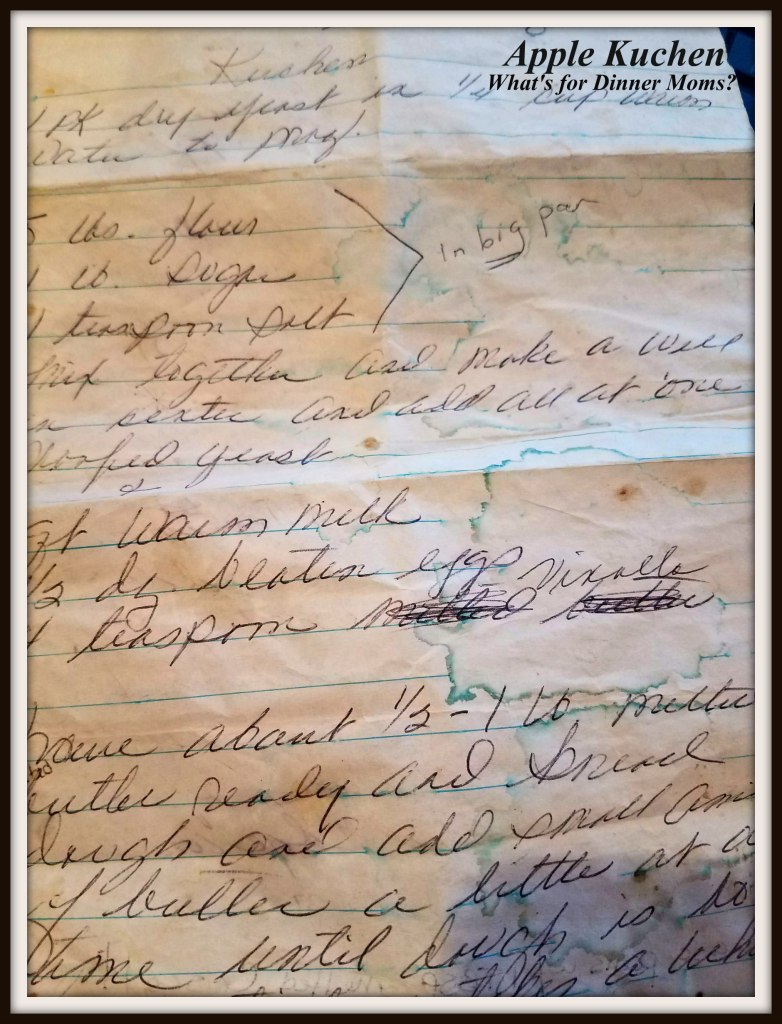 Apple Kuchen
What's for Dinner Moms?
Kuchen
1 pk dry yeast in 1/4 cup warm
water to proof.
5 lbs. flour
1 lb. sugar
1 teaspoon salt
In big pan
Mix together and make a well
in senter and add all at one
proofed yeast
qt warm milk
1/2 dz beaten eggs
1 teaspoon vinalla
have about 1/2 - 1 lb melted
butter ready and knead
dough and add small
of butter a little at a
time until dough is
a